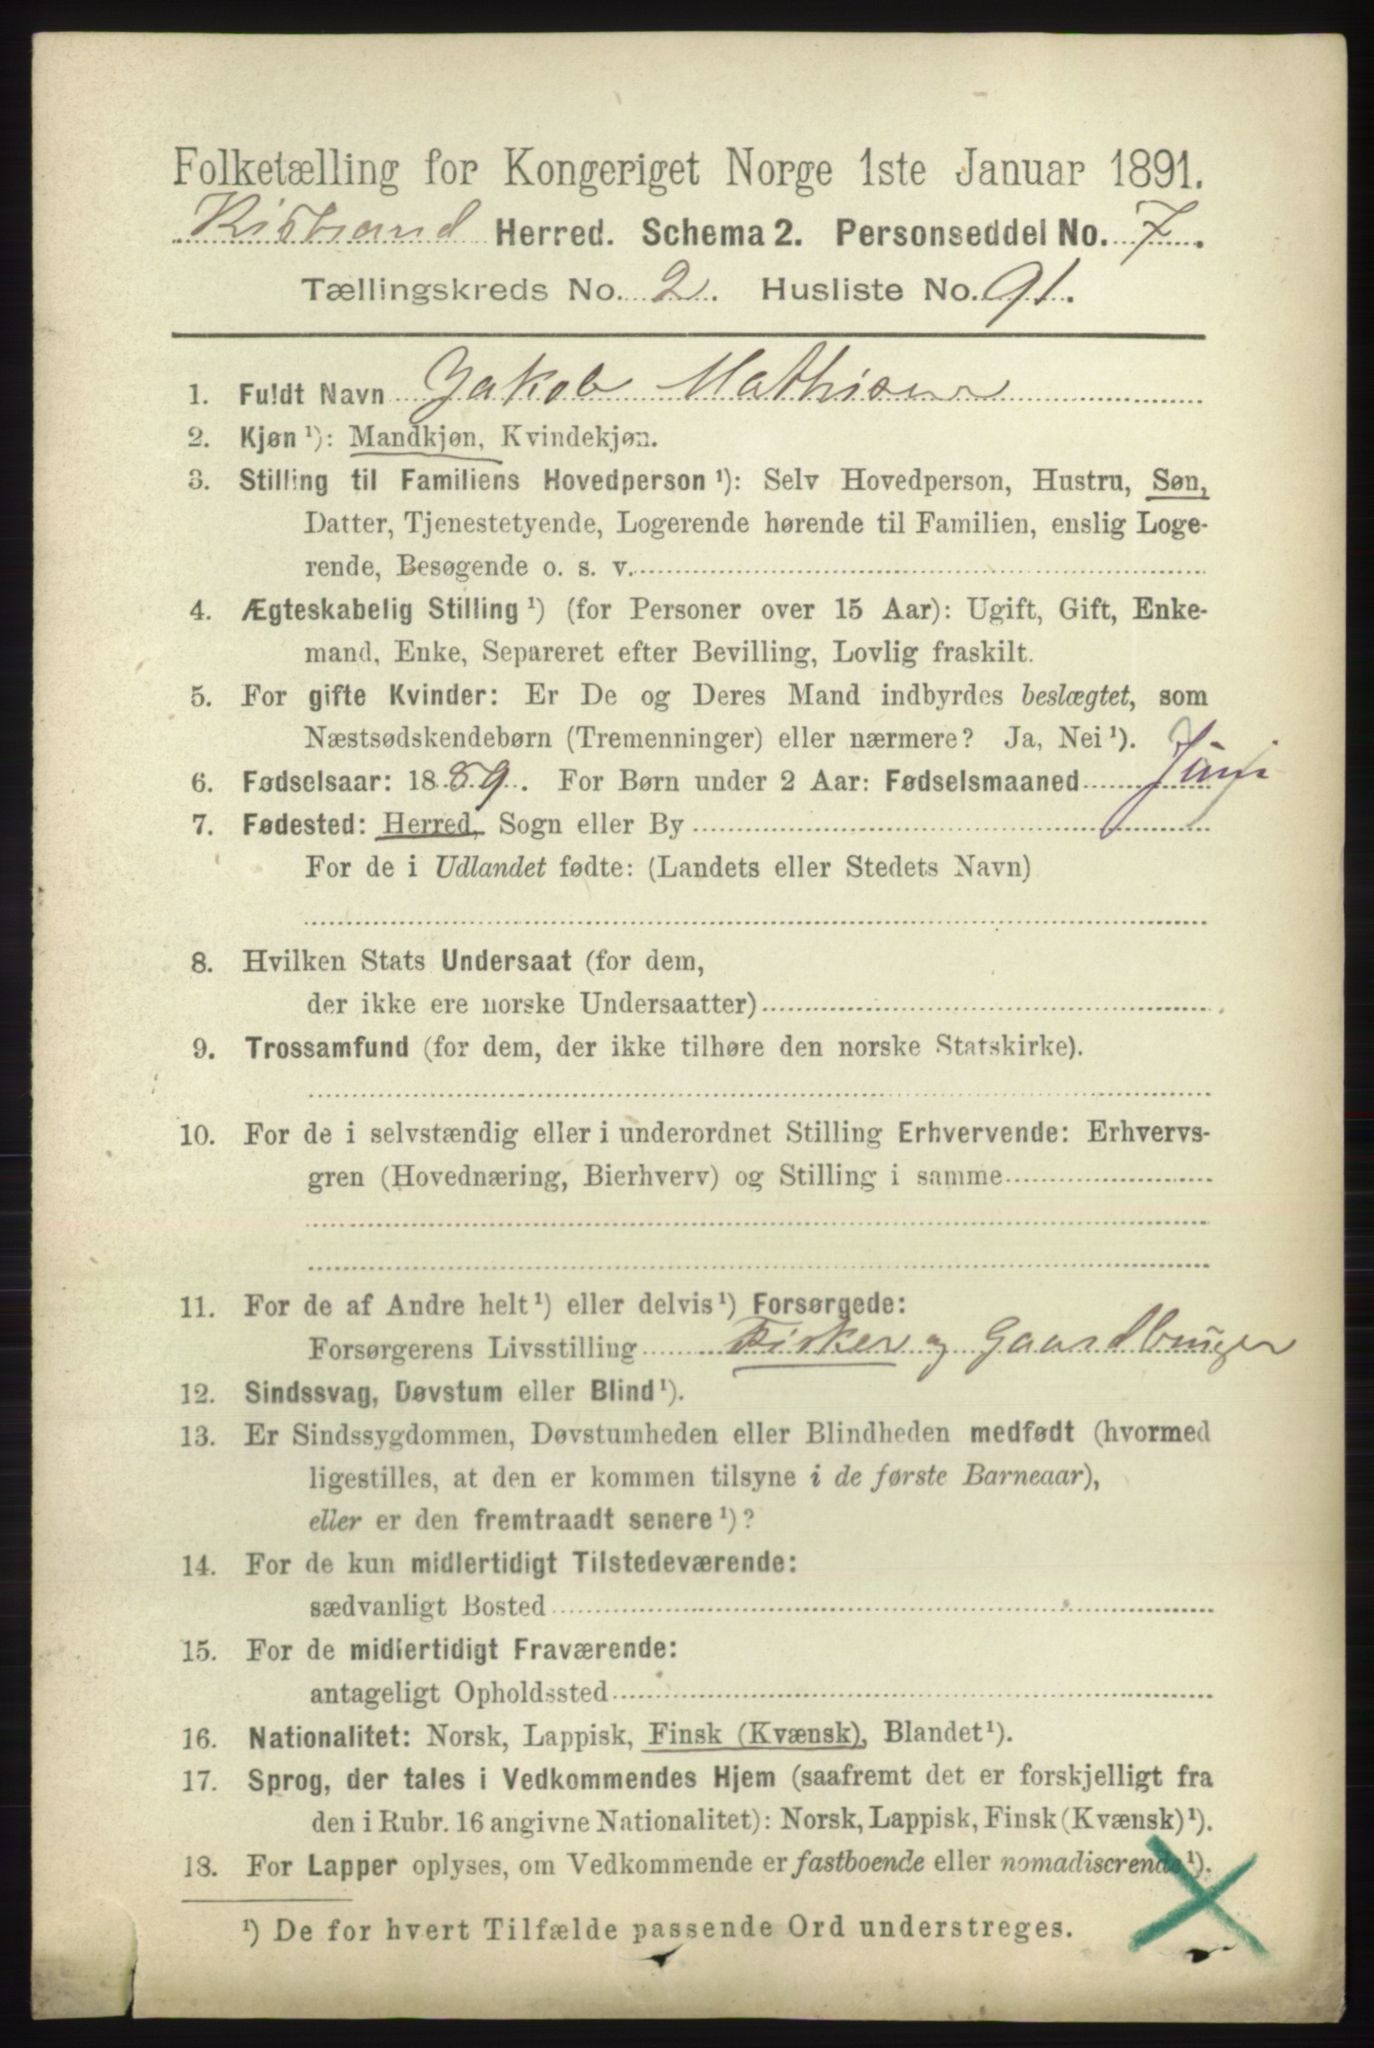 Folketælling for Kongeriget Norge 1ste Januar 1891.
Kistrand Herred. Schema 2. Personseddel No. 7.
Tællingskreds No. 2. Husliste No. 91.
1. Fuldt Navn Jakob Mathisen
2. Kjøn ¹): Mandkjøn, Kvindekjøn.
3. Stilling til Familiens Hovedperson ¹): Selv Hovedperson, Hustru, Søn,
Datter, Tjenestetyende, Logerende hørende til Familien, enslig Loge-
rende, Besøgende o. s. v.
4. Ægteskabelig Stilling ¹) (for Personer over 15 Aar): Ugift, Gift, Enke-
mand, Enke, Separeret efter Bevilling, Lovlig fraskilt.
5. For gifte Kvinder: Er De og Deres Mand indbyrdes beslægtet, som
Næstsødskendebørn (Tremenninger) eller nærmere? Ja, Nei ¹).
6. Fødselsaar: 1889. For Børn under 2 Aar: Fødselsmaaned Juni
7. Fødested: Herred, Sogn eller By
For de i Udlandet fødte: (Landets eller Stedets Navn)
8. Hvilken Stats Undersaat (for dem,
der ikke ere norske Undersaatter)
9. Trossamfund (for dem, der ikke tilhøre den norske Statskirke).
10. For de i selvstændig eller i underordnet Stilling Erhvervende: Erhvervs-
gren (Hovednæring, Bierhverv) og Stilling i samme
11. For de af Andre helt ¹) eller delvis ¹) Forsørgede:
Forsørgerens Livsstilling Fisker og Gaardbruger
12. Sindssvag, Døvstum eller Blind ¹).
13. Er Sindssygdommen, Døvstumheden eller Blindheden medfødt (hvormed
ligestilles, at den er kommen tilsyne i de første Barneaar),
eller er den fremtraadt senere ¹)?
14. For de kun midlertidigt Tilstedeværende:
sædvanligt Bosted
15. For de midlertidigt Fraværende:
antageligt Opholdssted
16. Nationalitet: Norsk, Lappisk, Finsk (Kvænsk), Blandet ¹).
17. Sprog, der tales i Vedkommendes Hjem (saafremt det er forskjelligt fra
den i Rubr. 16 angivne Nationalitet): Norsk, Lappisk, Finsk (Kvænsk) ¹).
18. For Lapper oplyses, om Vedkommende er fastboende eller nomadiserende ¹).
¹) De for hvert Tilfælde passende Ord understreges.